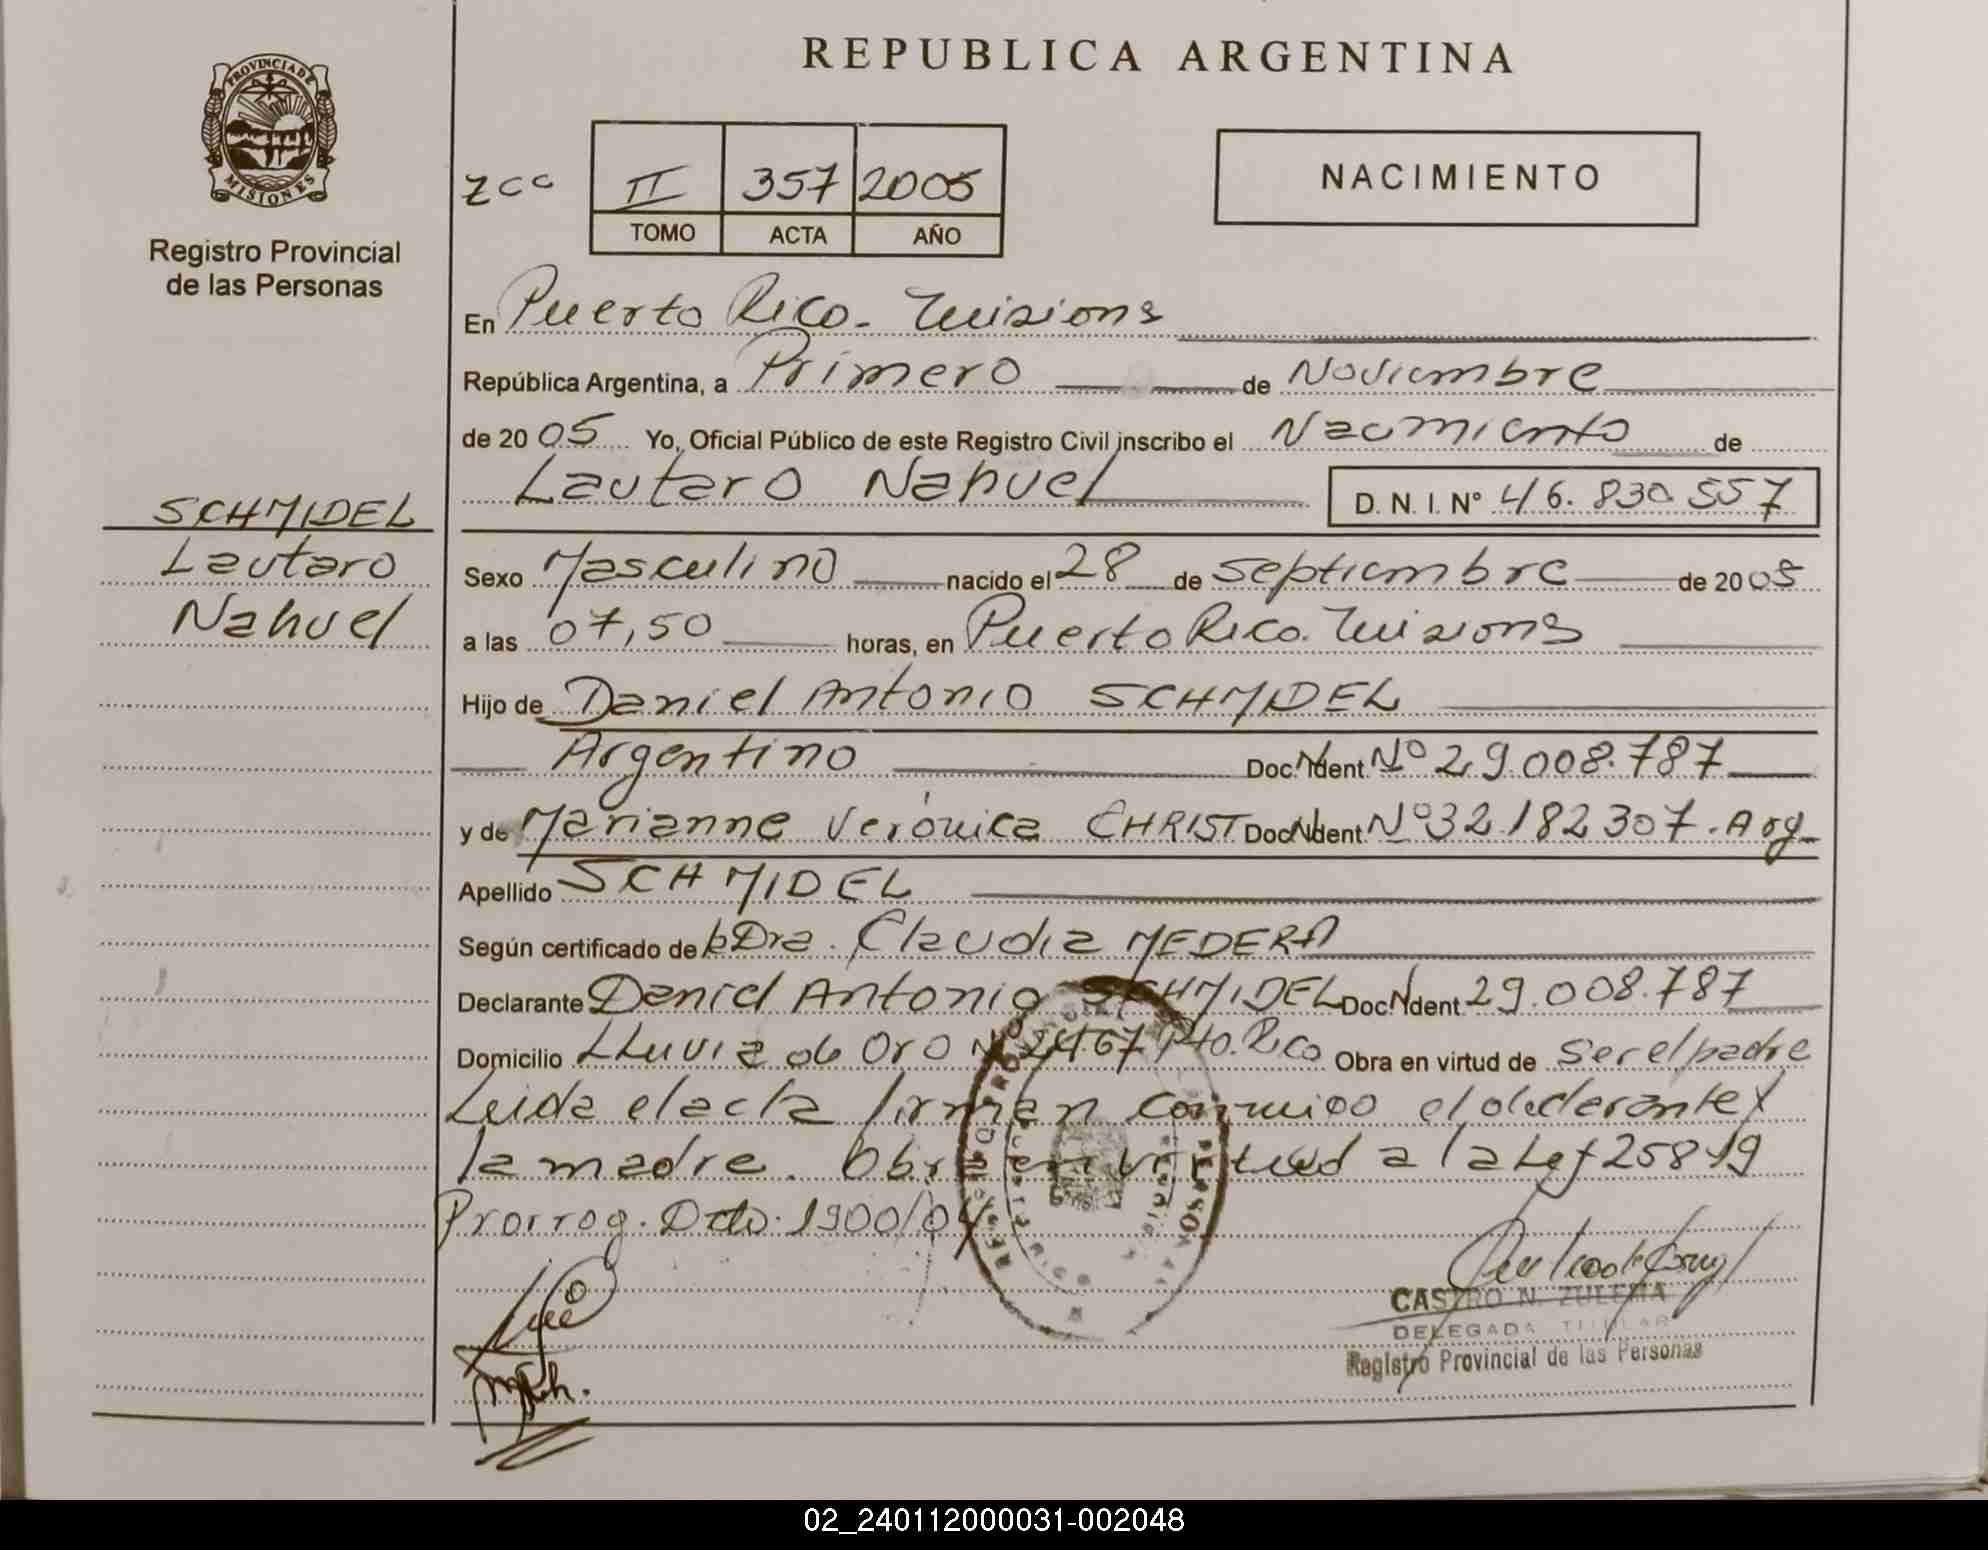 REPUBLICA ARGENTINA
PROVINCIA DE
MISIONES
Registro Provincial
de las Personas
zcc
II 357 2005
TOMO ACTA AÑO
NACIMIENTO
En Puerto Rico - Misiones
República Argentina, a Primero de Noviembre
de 2005 Yo, Oficial Público de este Registro Civil inscribo el Nacimiento de
Lautaro Nahuel D. N. I. N° 46.830.557
SCHMIDEL
Lautaro
Nahuel
Sexo Masculino nacido el 28 de Septiembre de 2005
a las 07,50 horas, en Puerto Rico. Misiones
Hijo de Daniel Antonio SCHMIDEL
Argentino Doc. Ident. N° 29.008.787
y de Marianne Verónica CHRIST Doc. Ident. N° 32.182.307. Arg
Apellido SCHMIDEL
Según certificado de la Dra. Claudia MEDERA
Declarante Daniel Antonio SCHMIDEL Doc. Ident. 29.008.787
Domicilio Lluvia de Oro N° 2467 Pto. Rico Obra en virtud de ser el padre
Leida el acta firman conmigo el declarante y
la madre. Obra en virtud a la Ley 25819
Prorrog. Dcto. 1900/04
CASTRO N. ZULEMA
DELEGADA TITULAR
Registro Provincial de las Personas
02_240112000031-002048